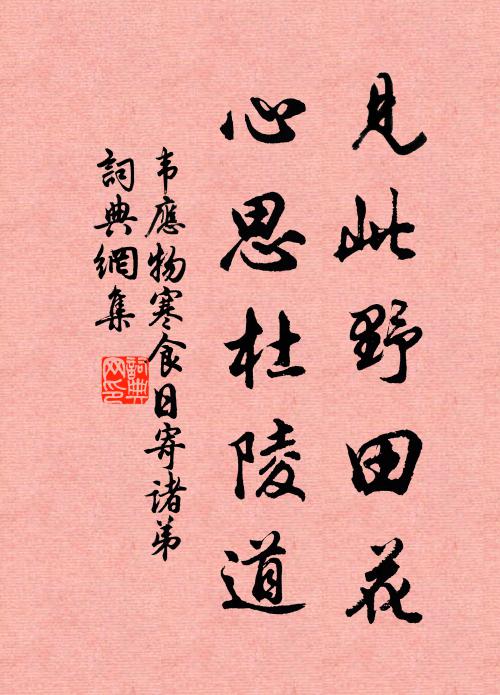 见此野田花
心思杜陵道
韦應物寒食日寄诸弟
詞典網集
詞典
网印